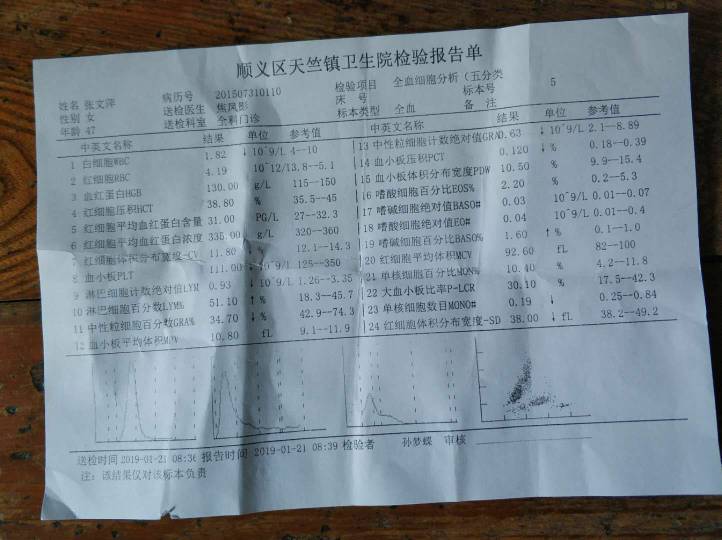 顺义区天竺镇卫生院检验报告单
姓名 张文萍 病历号 201507310110 检验项目 全血细胞分析（五分类 标本号 5
性别 女 送检医生 焦凤彤 床 号
年龄 47 送检科室 全科门诊 标本类型 全血 备 注
中英文名称 结果 单位 参考值
1 白细胞WBC 1.82 ↓ 10^9/L 4--10
2 红细胞RBC 4.19 10^12/l 3.8--5.1
3 血红蛋白HGB 130.00 g/L 115--150
4 红细胞压积HCT 38.80 % 35.5--45
5 红细胞平均血红蛋白含量 31.00 PG/L 27--32.3
6 红细胞平均血红蛋白浓度 335.00 g/L 320--360
7 红细胞体积分布宽度-CV 11.80 ↓ % 12.1--14.3
8 血小板PLT 111.00 ↓ 10^9/L 125--350
9 淋巴细胞计数绝对值LYM 0.93 ↓ 10^9/L 1.26--3.35
10 淋巴细胞百分数LYM% 51.10 ↑ % 18.3--45.7
11 中性粒细胞百分数GRA% 34.70 ↓ % 42.9--74.3
12 血小板平均体积MPV 10.80 fL 9.1--11.9
中英文名称 结果 单位 参考值
13 中性粒细胞计数绝对值GRA 0.63 ↓ 10^9/L 2.1--8.89
14 血小板压积PCT 0.120 ↓ % 0.18--0.39
15 血小板体积分布宽度PDW 10.50 % 9.9--15.4
16 嗜酸细胞百分比EOS% 2.20 % 0.2--5.3
17 嗜碱细胞绝对值BASO# 0.03 10^9/L 0.01--0.07
18 嗜酸细胞绝对值EO# 0.04 10^9/L 0.01--0.4
19 嗜碱细胞百分比BASO% 1.60 ↑ % 0.1--1.0
20 红细胞平均体积MCV 92.60 fL 82--100
21 单核细胞百分比MON% 10.40 % 4.2--11.8
22 大血小板比率P-LCR 30.10 % 17.5--42.3
23 单核细胞数目MONO# 0.19 ↓ 0.25--0.84
24 红细胞体积分布宽度-SD 38.00 ↓ fL 38.2--49.2
送检时间 2019-01-21 08:36 报告时间 2019-01-21 08:39 检验者 孙梦蝶 审核
注：该结果仅对该标本负责